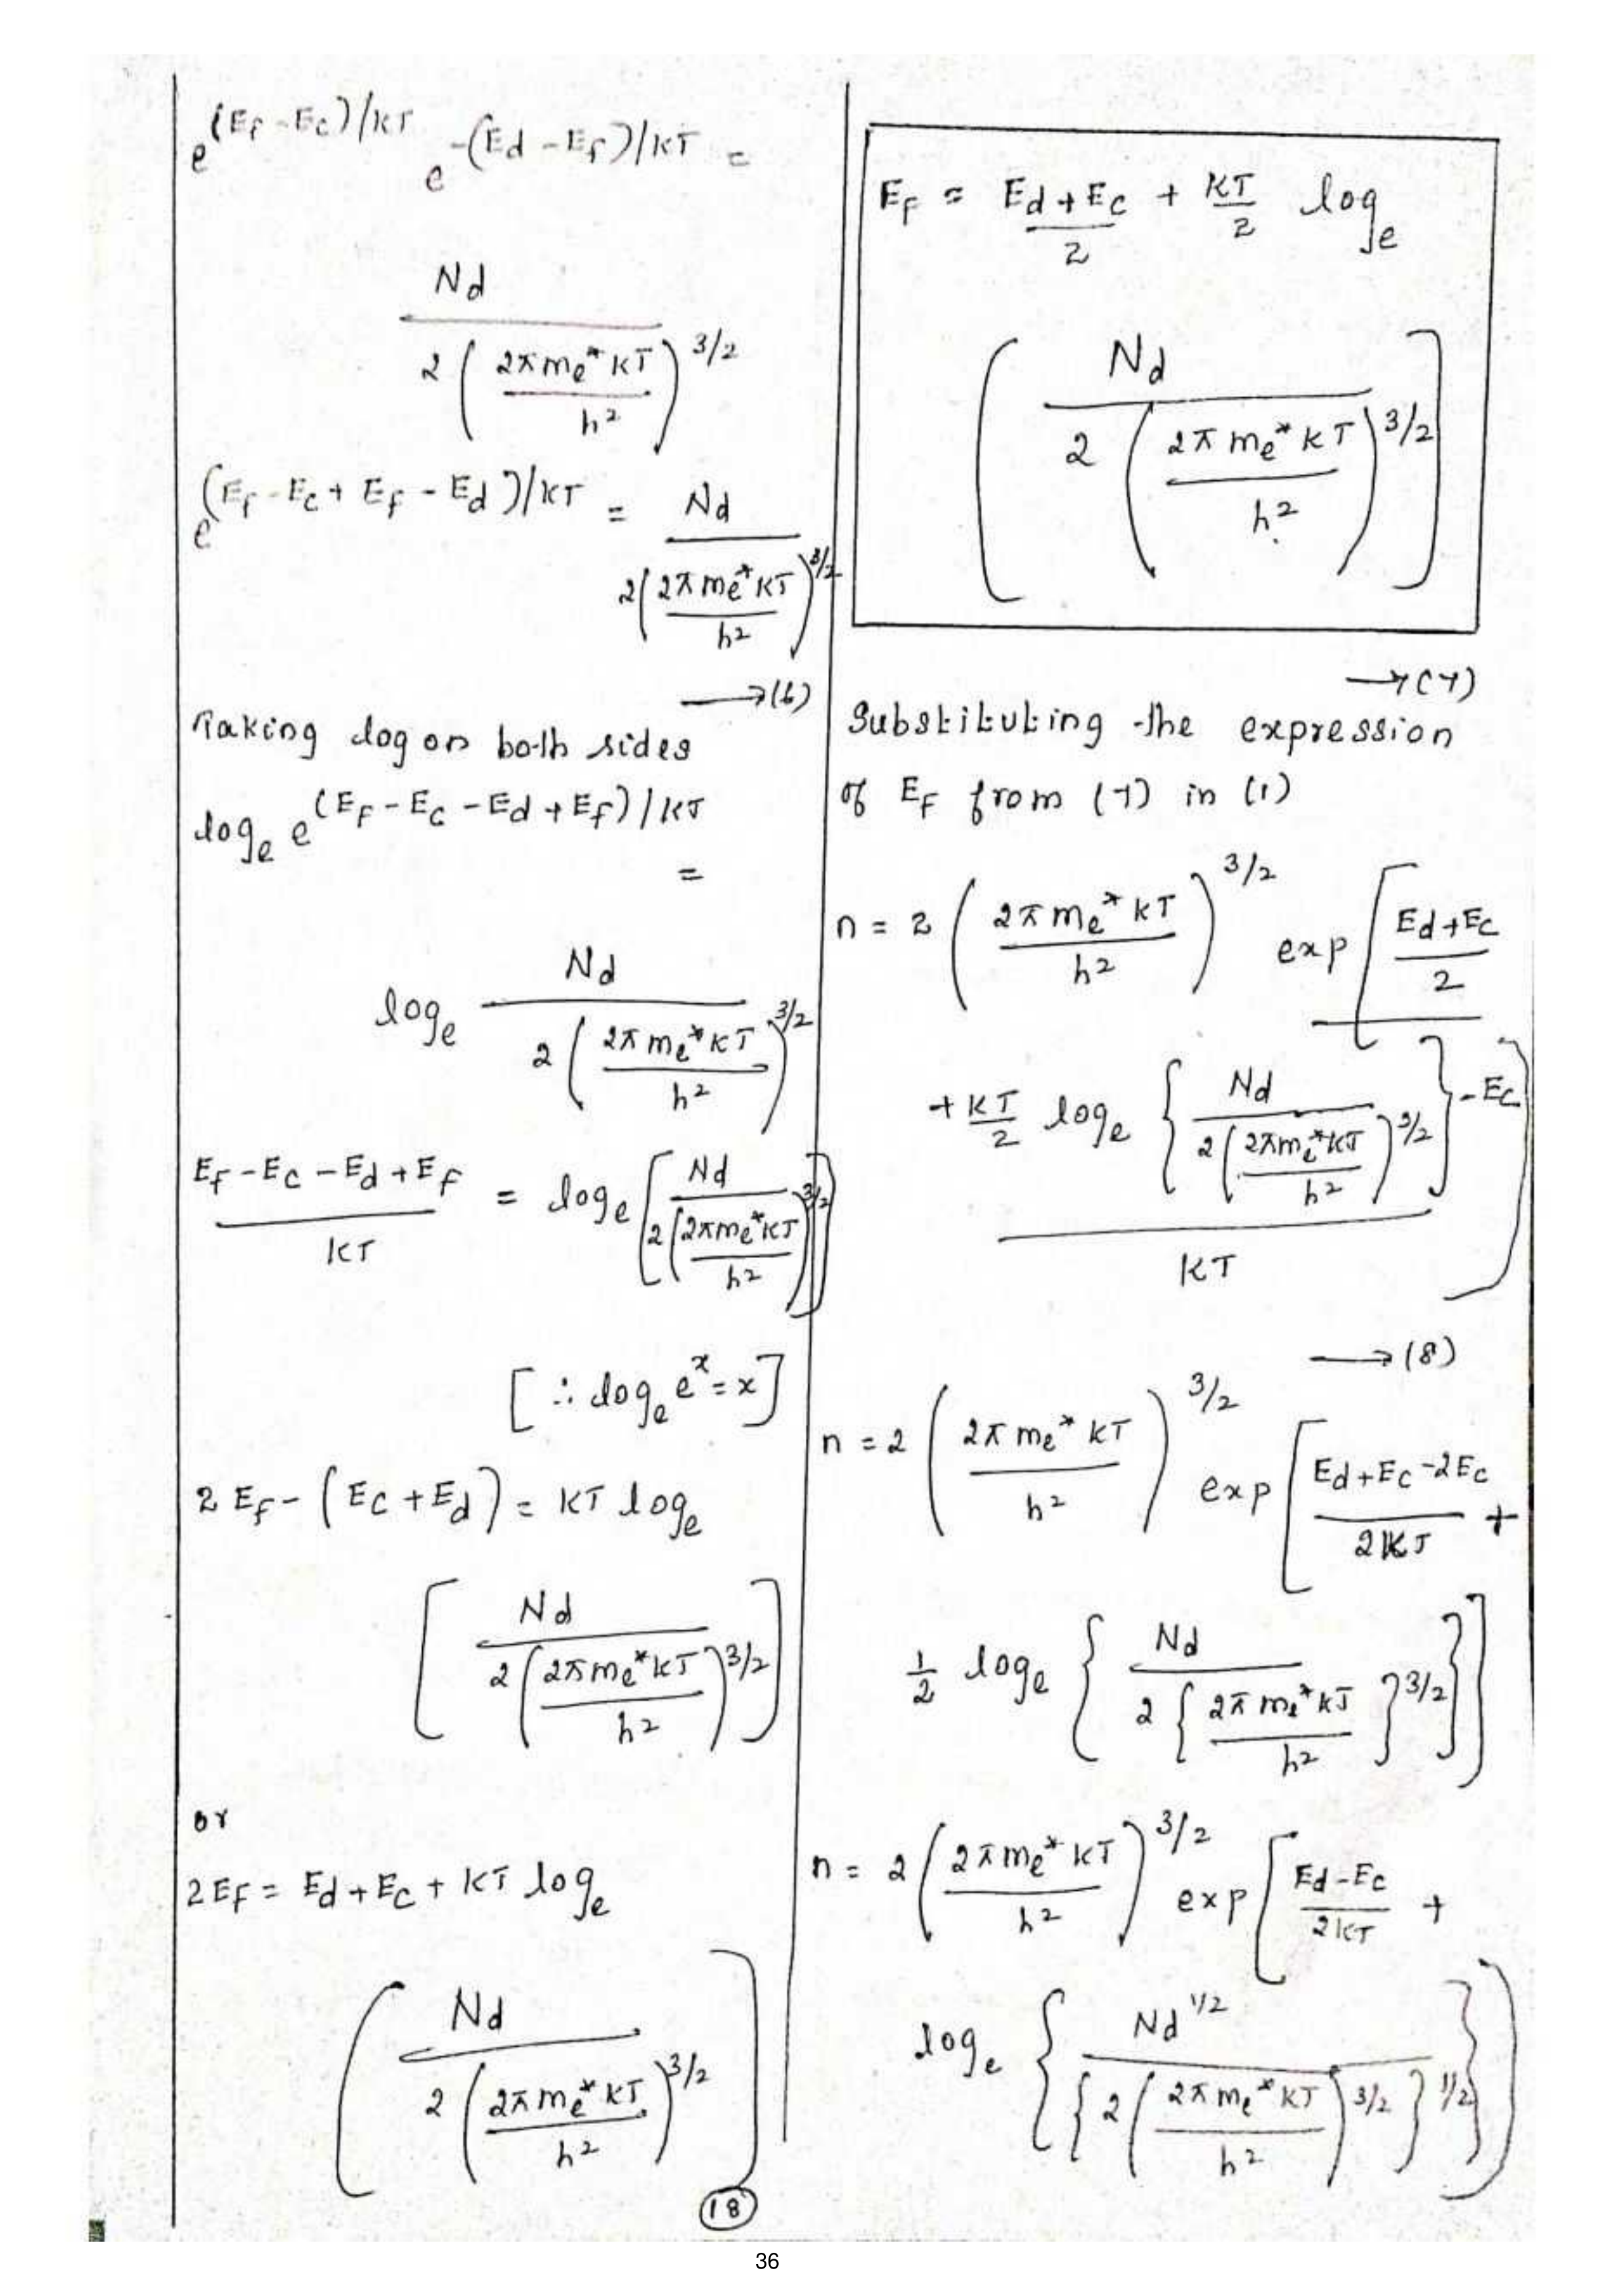 e^(E_f - E_c)/KT e^-(E_d - E_f)/KT =
N_d
2 ( 2π m_e* KT / h² )^3/2
e^(E_f - E_c + E_f - E_d)/KT = N_d
2 ( 2π m_e* KT / h² )^3/2
→ (6)
Taking log on both sides
log_e e^(E_F - E_c - E_d + E_f)/KT
=
log_e N_d
2 ( 2π m_e* KT / h² )^3/2
E_f - E_c - E_d + E_F / KT = log_e [ N_d / 2 ( 2π m_e* KT / h² )^3/2 ]
[ ∴ log_e e^x = x ]
2 E_f - ( E_c + E_d ) = KT log_e
[ N_d / 2 ( 2π m_e* KT / h² )^3/2 ]
or
2 E_f = E_d + E_c + KT log_e
[ N_d / 2 ( 2π m_e* KT / h² )^3/2 ]
18
E_F = E_d + E_c / 2 + KT / 2 log_e
[ N_d / 2 ( 2π m_e* KT / h² )^3/2 ]
→ (7)
Substituting the expression
of E_F from (7) in (1)
n = 2 ( 2π m_e* KT / h² )^3/2 exp [ E_d + E_c / 2
+ KT / 2 log_e { N_d / 2 ( 2π m_e* KT / h² )^3/2 } - E_c ]
KT
→ (8)
n = 2 ( 2π m_e* KT / h² )^3/2 exp [ E_d + E_c - 2E_c / 2KT +
1/2 log_e { N_d / 2 { 2π m_e* KT / h² }^3/2 } ]
n = 2 ( 2π m_e* KT / h² )^3/2 exp [ E_d - E_c / 2KT +
log_e { N_d^1/2 / { 2 ( 2π m_e* KT / h² )^3/2 }^1/2 } ]
36